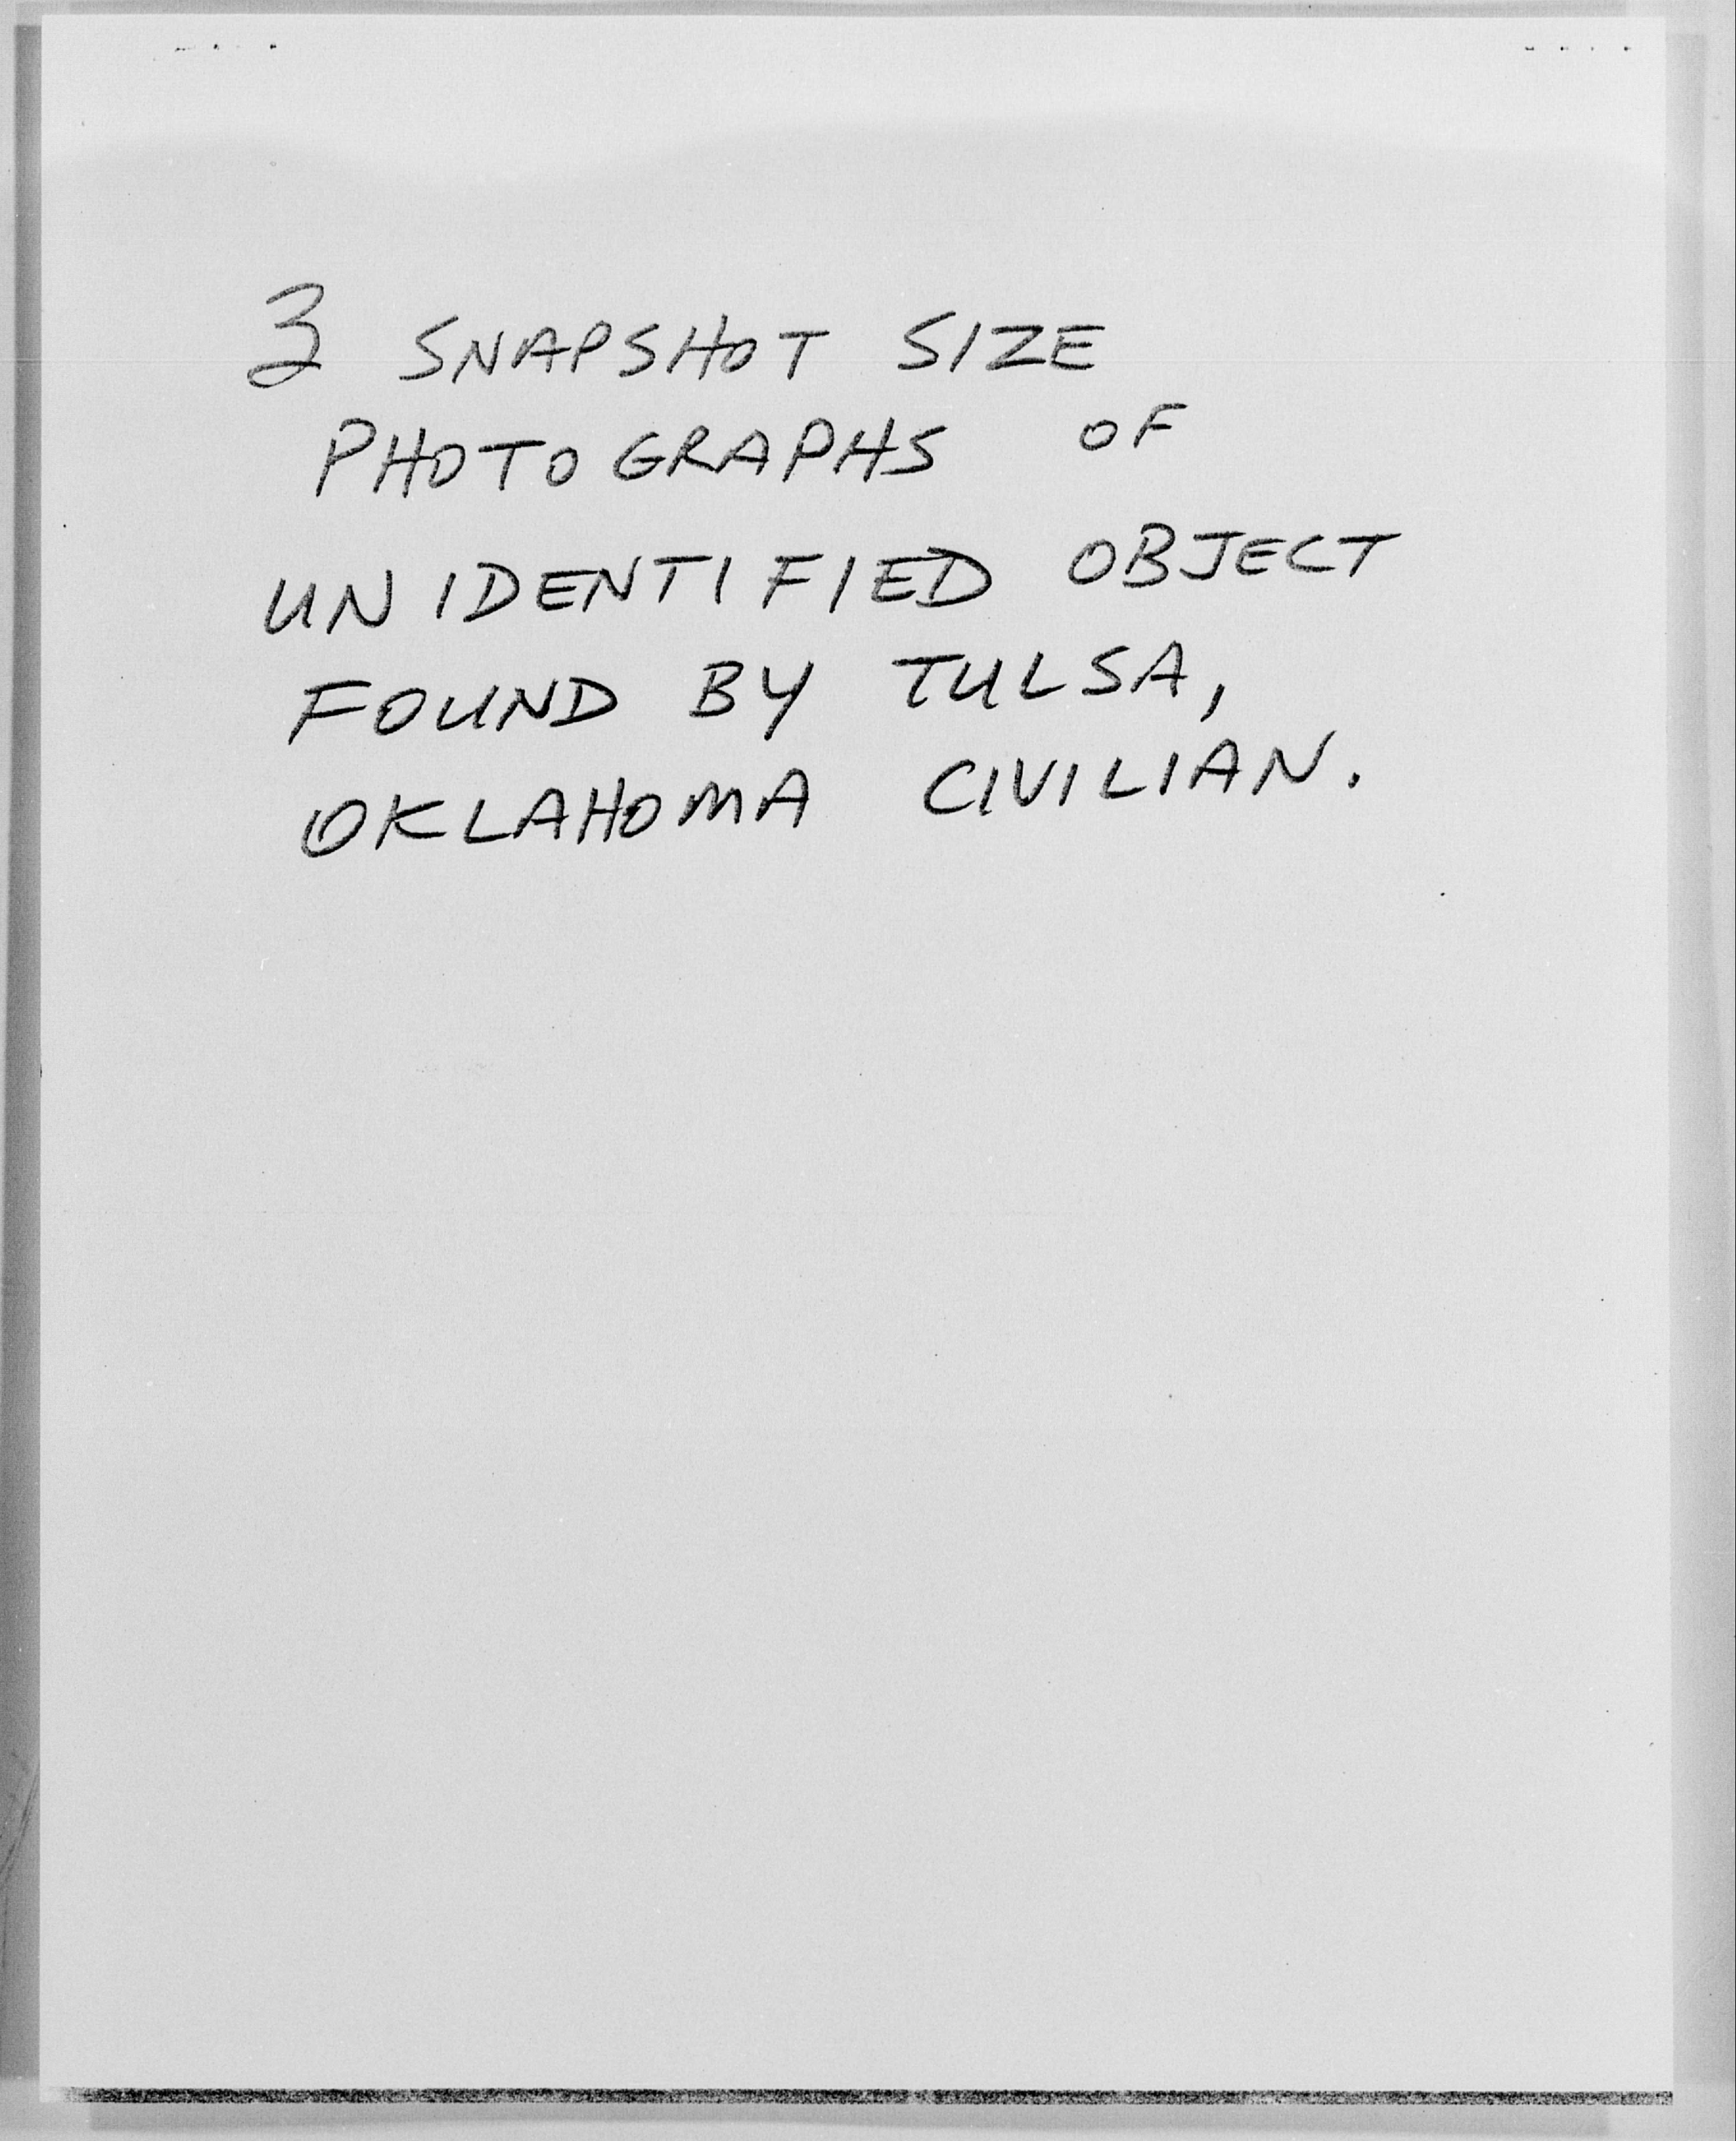 3 SNAPSHOT SIZE
PHOTOGRAPHS OF
UNIDENTIFIED OBJECT
FOUND BY TULSA,
OKLAHOMA CIVILIAN.